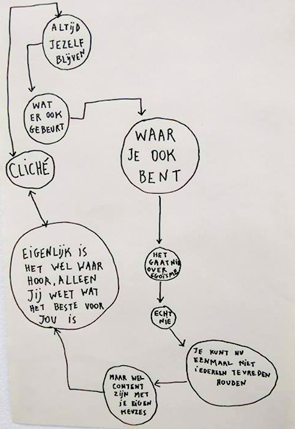 ALTIJD
JEZELF
BLIJVEN
WAT
ER OOK
GEBEURT
WAAR
JE OOK
BENT
CLICHÉ
HET
GAAT NIE
OVER
EGOÏSME
ECHT
NIE
JE KUNT NU
EENMAAL NIET
IEDEREEN TEVREDEN
HOUDEN
MAAR WEL
CONTENT
ZIJN MET
JE EIGEN
KEUZES
EIGENLIJK IS
HET WEL WAAR
HOOR, ALLEEN
JIJ WEET WAT
HET BESTE VOOR
JOU IS